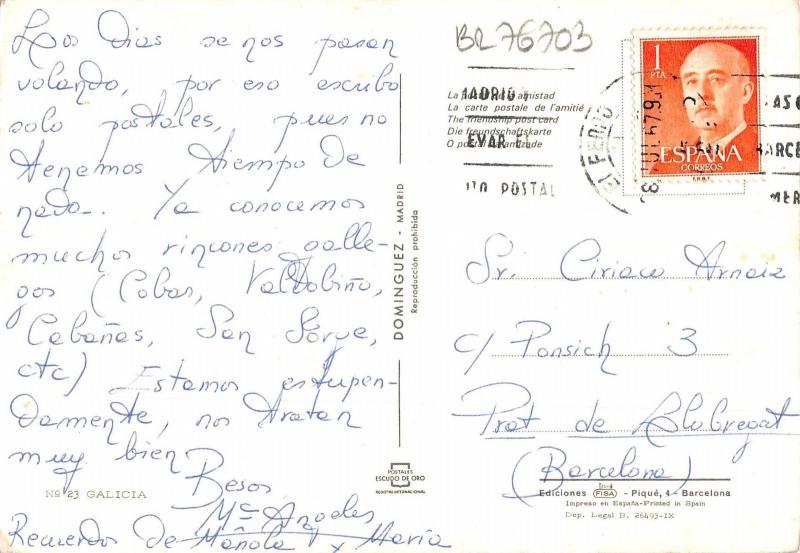 Los Dias se nos pasan
volando, por eso escribo
solo postales, pues no
tenemos tiempo de
nada. Ya conocemos
muchos rincones galle-
gos (Cobas, Valdobiño,
Cabañas, San Jorge,
etc) Estamos estupen-
damente, nos tratan
muy bien
Besos
Mª Angeles
Recuerdos de Manola y María
Nº 23 GALICIA
POSTALES
ESCUDO DE ORO
REGISTRO INTERNACIONAL
DOMINGUEZ - MADRID
Reproducción prohibida
BR 76703
La amistad
La carte postale de l'amitié
The friendship post card
Die freundschaftskarte
O postal
MADRID
POSTAL
1
PTA
ESPAÑA
CORREOS
Sr. Ciriaco Arnaiz
c/ Ponsich 3
Prat de Llobregat
(Barcelona)
Ediciones FISA - Piqué, 4 - Barcelona
Impreso en España-Printed in Spain
Dep. Legal B. 26493-IX